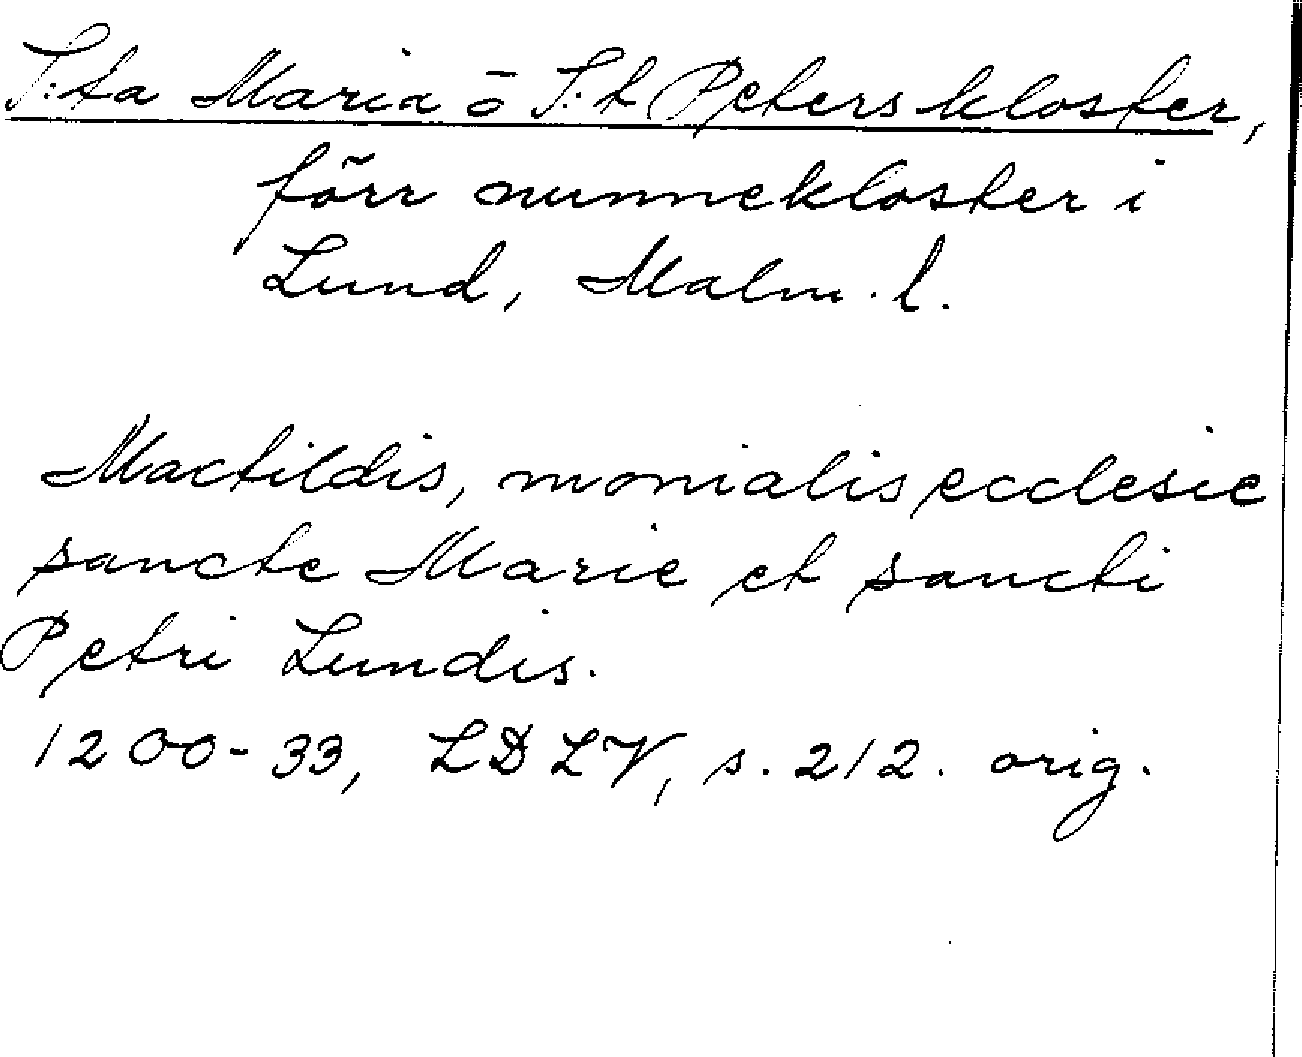 S:ta Maria o S:t Peters kloster,
förr nunnekloster i
Lund, Malm. l.
Mactildis, monialis ecclesie
sancte Marie et sancti
Petri Lundis.
1200-33, LDLV, s. 212. orig.